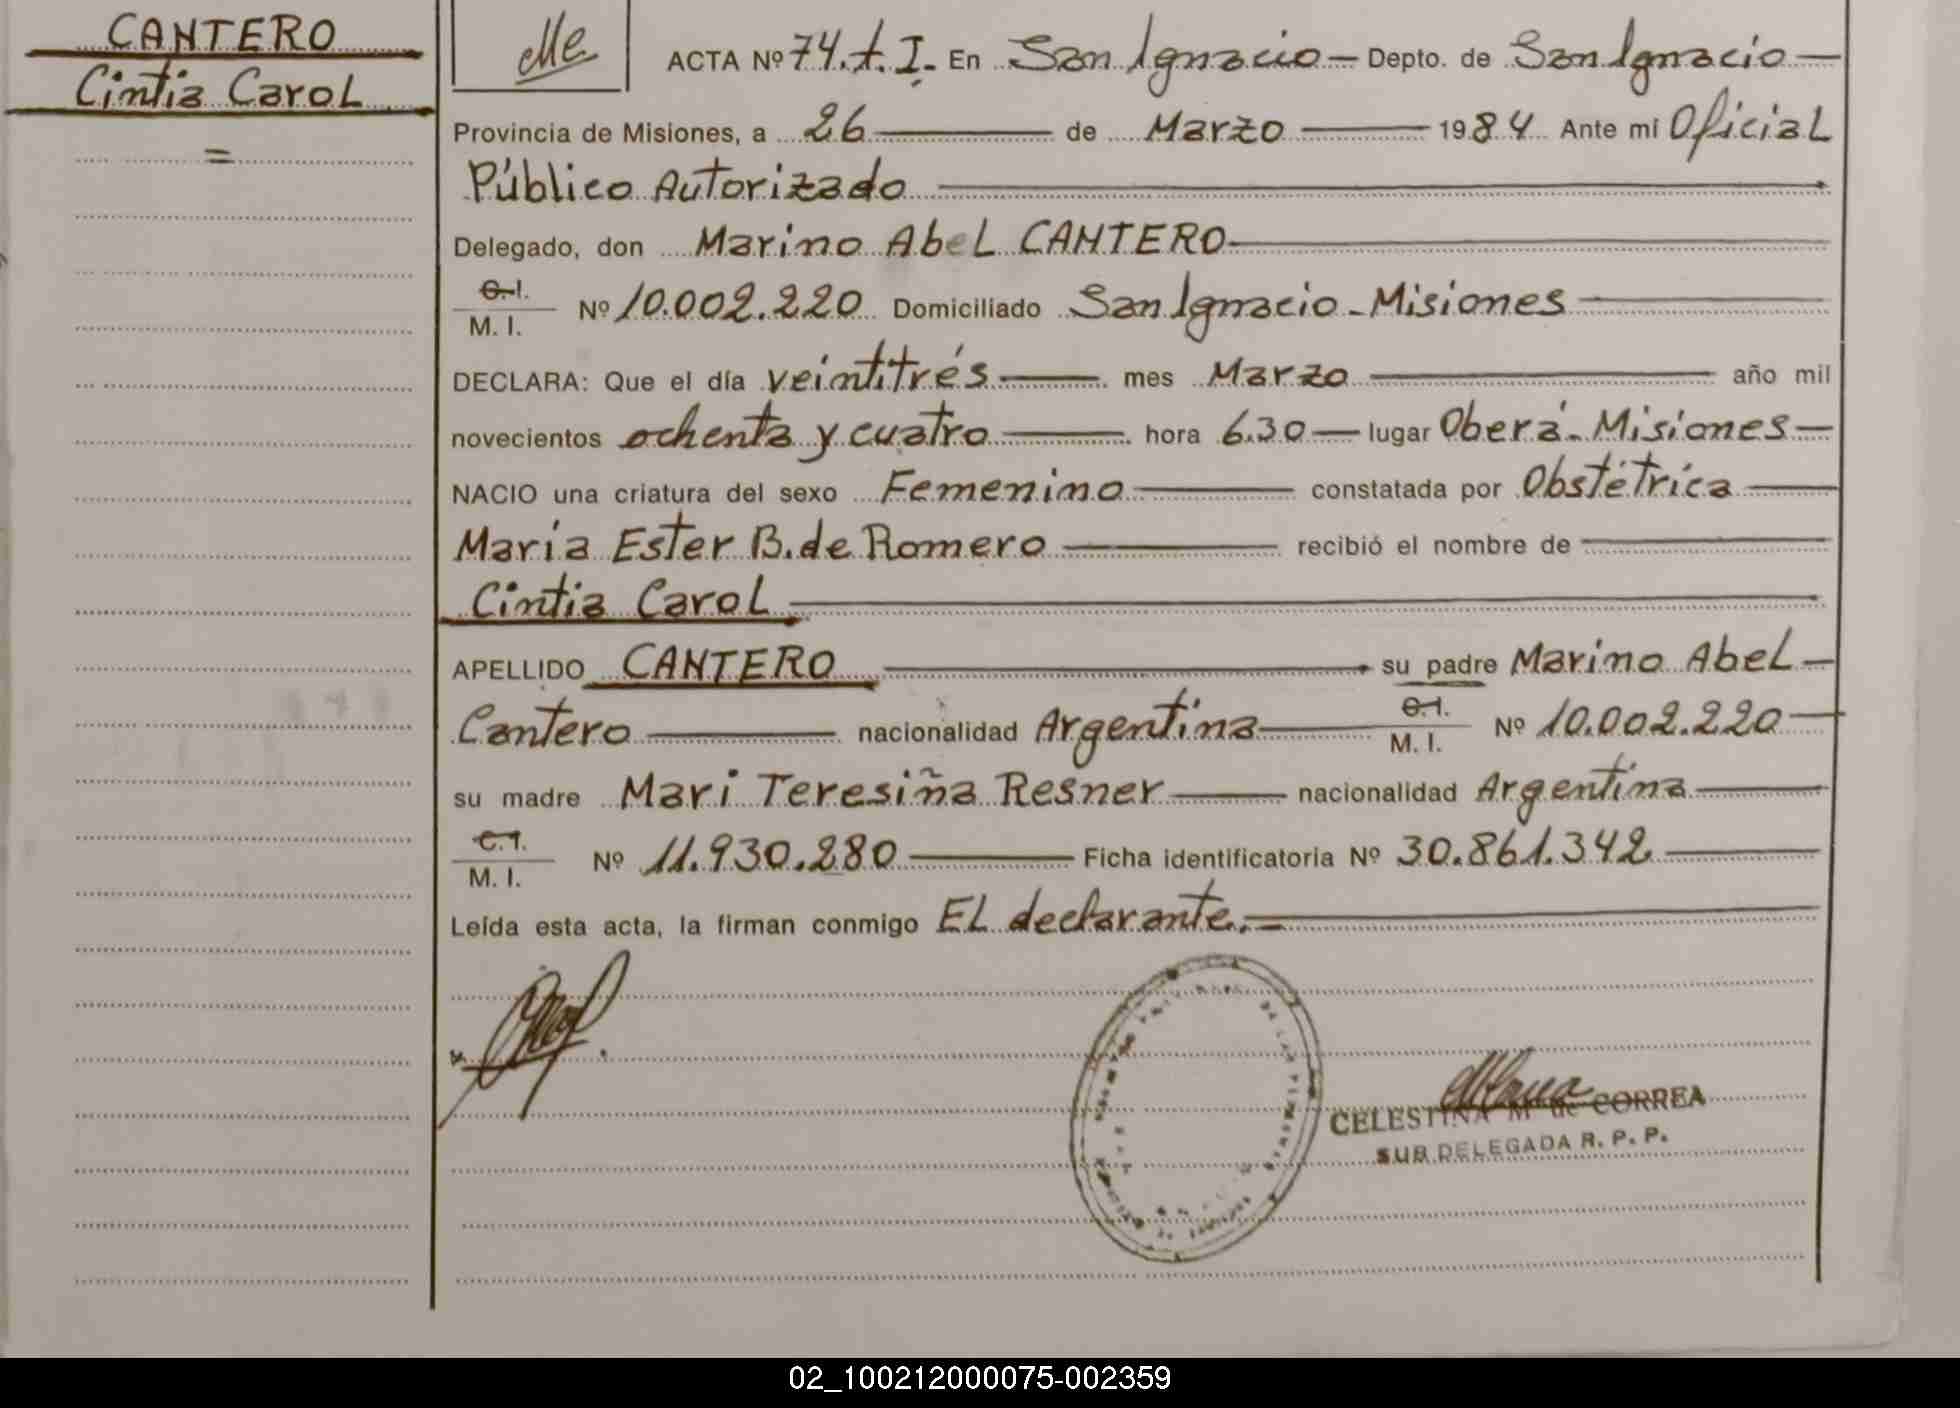 CANTERO
Cintia Carol
=
ACTA Nº 74.t.I. En San Ignacio — Depto. de San Ignacio —
Provincia de Misiones, a 26 de Marzo 1984 Ante mí Oficial
Público Autorizado
Delegado, don Marino Abel CANTERO
C.I. M. I. Nº 10.002.220 Domiciliado San Ignacio - Misiones
DECLARA: Que el día veintitrés mes Marzo año mil
novecientos ochenta y cuatro hora 6.30 — lugar Oberá - Misiones —
NACIO una criatura del sexo Femenino constatada por Obstétrica
María Ester B. de Romero recibió el nombre de
Cintia Carol
APELLIDO CANTERO su padre Marino Abel —
Cantero nacionalidad Argentina C.I. M. I. Nº 10.002.220
su madre Mari Teresiña Resner nacionalidad Argentina
C.I. M. I. Nº 11.930.280 Ficha identificatoria Nº 30.861.342
Leída esta acta, la firman conmigo El declarante.
CELESTINA M de CORREA
SUB DELEGADA R. P. P.
02_100212000075-002359